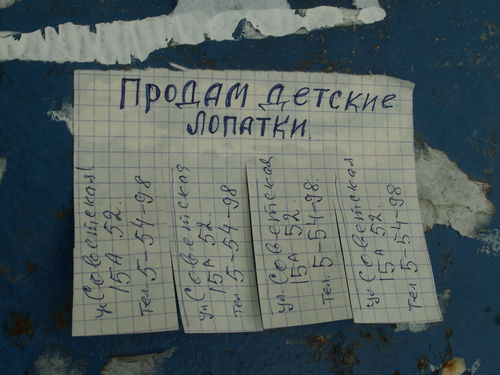 ПРОДАМ ДЕТСКИЕ
ЛОПАТКИ.
ул Советская
15А 52.
тел. 5-54-98
ул Советская
15А 52.
тел. 5-54-98
ул Советская
15А 52.
тел. 5-54-98.
ул Советская
15А 52.
тел. 5-54-98